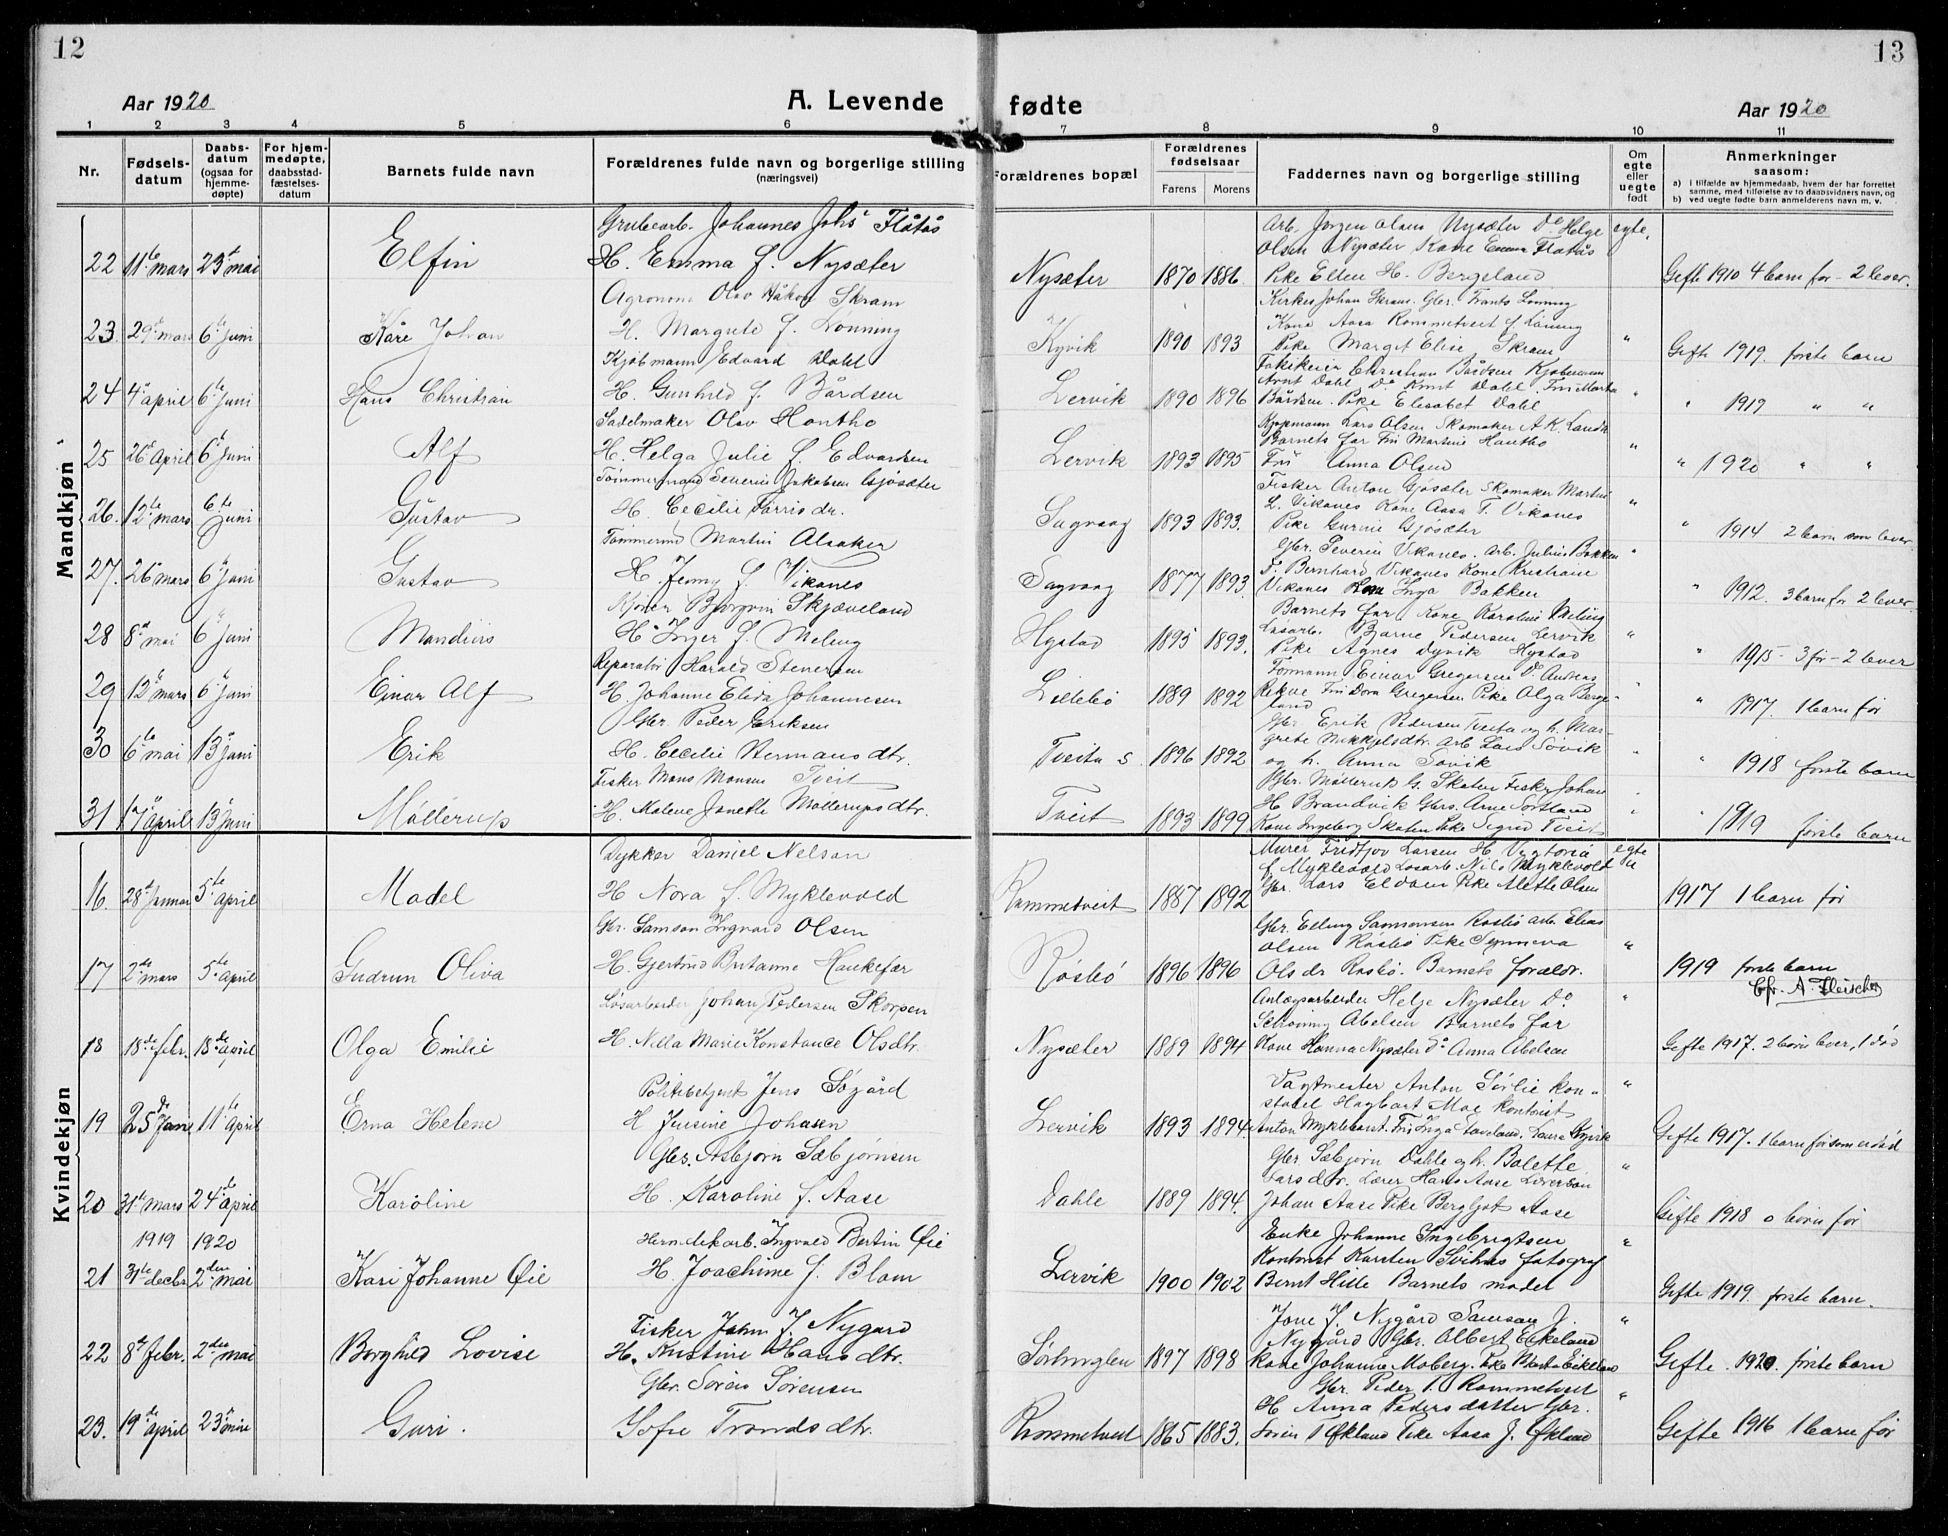 12
13
Aar 1920
A. Levende fødte
Aar 1920
1 2 3 4 5 6 7 8 9 10 11
Nr.
Fødselsdatum
Daabsdatum (ogsaa for hjemmedøpte)
For hjemmedøpte, daabsstadfæstelsesdatum
Barnets fulde navn
Forældrenes fulde navn og borgerlige stilling (næringsvei)
Forældrenes bopæl
Forældrenes fødselsaar
Farens Morens
Faddernes navn og borgerlige stilling
Om egte eller uegte født
Anmerkninger saasom:
a) I tilfælde av hjemmedaab, hvem der har forrettet samme, med tilføielse av to daabsvidners navn, og
b) ved uegte fødte barn anmelderens navn m. v.
Mandkjøn
Grubearb. Johannes Johs Flåtås
Arb. Jørgen Olsen Nysæter Do Helge egte.
Olsen Nysæter Kone Emma Flatås
22 11te mars 23de mai Elfin H. Emma f. Nysæter Nysæter 1870 1886. Pike Ellen H. Bergeland Gifte 1910 4 barn før - 2 lever.
Agronom Olav Håkon Skram
Kirkes. Johan Skram. Gbr. Frants Lønning
Kone Aasa Rommetveit f. Lønning
23. 29de mars 6te juni Kåre Johan H. Margrete f. Lønning Kyvik 1890 1893 Pike Margit Elise Skram " Gifte 1919. første barn
Kjøbmann Edvard Dahl
Fabrikeier Christian Bårdsen Kjøbmann
Arnt Dahl Do Knut Dahl. Frk Marta
24 4de april 6te juni Hans Christian H. Gunhild f. Bårdsen Lervik 1890 1896 Bårdsen. Pike Elisabet Dahl " " 1919 " "
Sadelmaker Olav Hontho
Kjøpmann Lars Olsen Skomaker A. K. Landh
Barnets far Fru Martine Hontho
25 26de April 6te juni Alf H. Helga Julie f. Edvardsen Lervik 1893 1895 Fru Anna Olsen " " 1920 " "
Tømmermand Severin Jakobsen Gjøsæter
Fisker Anton Gjøsæter Skomaker Martin
L. Vikanes Kone Aasa T. Vikanes
26. 12te mars 6te juni Gustav H. Cecilie Larrisdr. Sagvaag 1893 1893. Pike Gurine Gjøsæter " " 1914 2 barn som lever.
Tømmermd Martin Alsaker
Gbr. Severin Vikanes. Arb. Julius Bakken
F. Bernhard Vikanes Kone Kristiane
27. 26de mars 6te juni Gustav H. Jenny f. Vikanes Sagvaag 1877 1893. Vikanes Kone Inga Bakken " " 1912. 3 barn før 2 lever
Kjører Bjørgvin Skjæveland
Barnets far Kone Karoline Meling
Løsarb. Bjarne Pedersen Lervik
28 8de mai 6te juni Mandius H. Inger f. Meling Hystad 1895 1893. Pike Agnes Dyvik Hystad " " 1915 - 3 før - 2 lever
Reparatør Harald Stenersen
Formann Einar Gregersen Do Andreas
29 12te mars 6te juni Einar Alf H. Johanne Elida Johannesen Lillebø 1889 1892 Rekve Fru Dora Gregersen Pike Olga Bergeland " " 1917. 1 barn før
Gbr. Peder Eriksen
Gbr Erik Pedersen Tveita og h. Margrete Mikkjelsdtr. Arb Lars Søvik
30 6te mai 13de juni Erik H. Cecilie Hermansdtr. Tveita s. 1896 1892 og h. Anna Søvik " " 1918 første barn
Fisker Mons Monsen Tveit
Gbr. Møllerup G. Skaten Fisker Johan
H Brandvik Gbrs. Arne Sortland
31 17de april 13de juni Møllerup H. Malene Janette Møllerupsdtr. Tveit 1893 1899 Kone Ingeborg Skaten Pike Sigrid Tveit " " 1919 første barn
Kvindekjøn
Dykker Daniel Nelson
Murer Fridtjov Larsen H. Vigtoria egte
f. Myklevold Løsarb. Nils Myklevold "
16. 28de januar 5te april Madel H. Nora f. Myklevold Rommetveit 1887 1892 Gbr. Lars Eldøen Pike Alette Olsen 1917 1 barn før
Gbr. Samson Ingvard Olsen
Gbr Elling Samsonsen Røsbø arb. Elias
Olsen Røsbø Pike Synneva "
17 2den mars 5te april Gudrun Oliva H. Gjertrud Britanne Haukefær Røsbø 1896 1896 Olsdr Røsbø. Barnets foreldr. 1919 første barn
Cfr. A. Fleischer
Løsarbeider Johan Pedersen Skorpen
Anlægsarbeider Helje Nysæter Do "
Schrøning Abelsen Barnets far
18 18de febr. 18de april Olga Emilie H. Nilla Marie Konstance Olsdtr. Nysæter 1889 1894 Kone Hanna Nysæter Do Anna Abelsen Gifte 1917. 2 barn lever, 1 død
Politibetjent Jens Søgård
Vagtmester Anton Sørlie kon- "
stabel Hagbart Moe kontorist
19 25de Janr 11te april Erna Helene H Jensine Johnsen Lervik 1893 1894. Anton Myklebust. Frk Inga Loveland. Laura Kyvik Gifte 1917. 1 barn før som er død
Gbr. Asbjørn Sæbjørnsen
Gbr Sæbjørn Dahle og h. Bolette "
Larsdtr. Lærer Hans Aase
20 31te mars 24de april Karoline H. Karoline f. Aase Dahle 1889 1894. Johan Aase Pike Bergljot Aase Gifte 1918 0 barn før
1919 1920
Hermetikarb. Ingvald Bertin Øie
Enke Johanne Ingebrigtsen "
Kontorist Karsten fotograf
21 31te decbr 2den mai Kari Johanne Øie H. Joachime f. Blom Lervik 1900 1902 Bernt Hille Barnets moder Gifte 1919. første barn.
Fisker John J. Nygard
Jone J. Nygård Samson J. "
Nygård Gbr. Albert Eikeland
22 8de febr. 2den mai Borghild Lovise H. Kristine Hansdtr. 1897 1898 kone Johanne Moberg. Pike Berta Eikeland Gifte. 1920. første barn
Gbr. Søren Sørensen
Gbr. Peder P. Rommetveit "
H Anna Pedersdatter Gbr.
23. 19de april 23de mai Guri. Sofie Trondsdtr. Rommetveit 1865 1883. Søren T Økland Pike Aasa J. Økland Gifte 1916 1 barn før